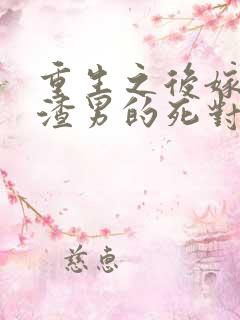 重生之後嫁
渣男的死對
慈惠